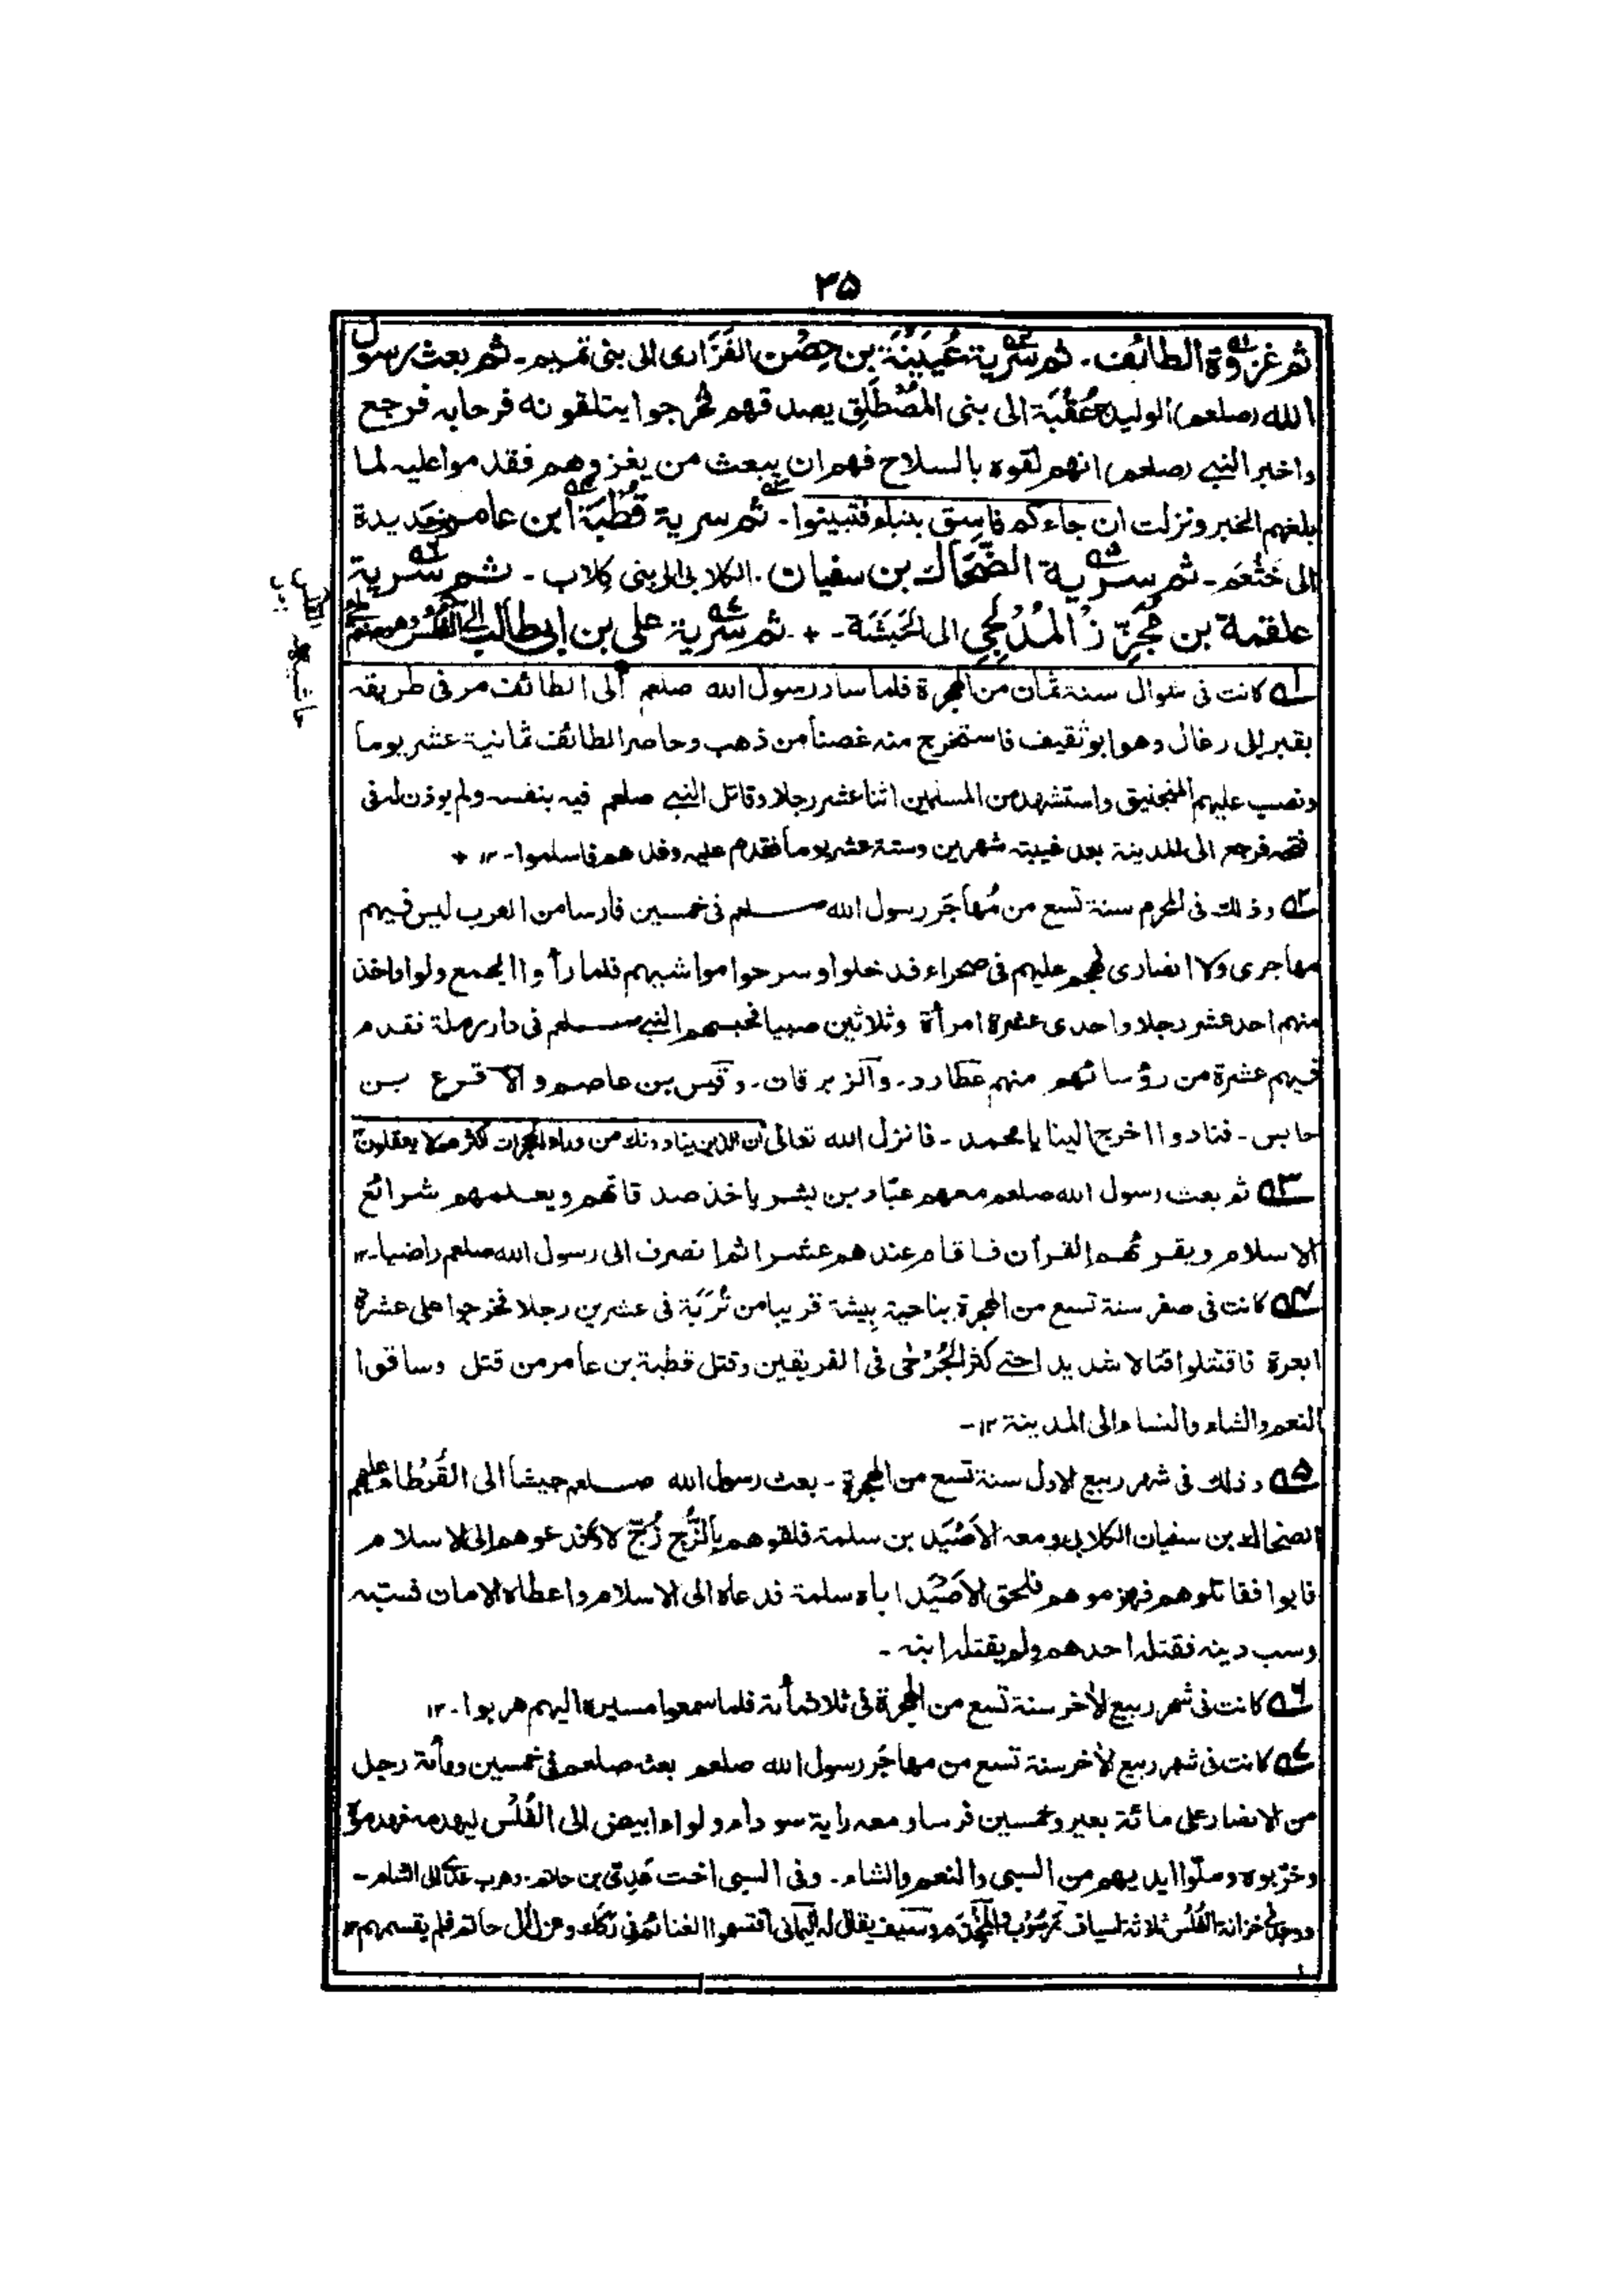 ۳۵
ثم غزوة الطائف۔ ثم سرية عُيَيْنَة بن حِصْن الفَزَارى الى بنى تميم۔ ثم بعث رسول
الله (صلعم) الوليد بن عُقْبَة الى بنى المُصْطَلِق يصدقهم فخرجوا يتلقونه فرحا به فرجع
واخبر النبى (صلعم) انهم لقوه بالسلاح فهم ان يبعث من يغزوهم فقدموا عليه لما
بلغهم الخبر ونزلت ان جاءكم فاسق بنبإ فتبينوا۔ ثم سرية قُطْبَة ابن عامر بن حديدة
الى خَثْعَم۔ ثم سرية الضَّحَّاك بن سفيان الكلابى الى بنى كِلاب۔ ثم سرية
علقمة بن مُجَزِّز المُدْلِجِى الى الحَبَشَة۔ + ثم سرية على بن ابى طالب الى الفُلْس وهو صنم
۵۱ كانت فى شوال سنة ثمان من الهجرة فلما سار رسول الله صلعم الى الطائف مر فى طريقه
بقبر ابى رغال وهو ابو ثقيف فاستخرج منه غصنا من ذهب وحاصر الطائف ثمانية عشر يوما
ونصب عليهم المنجنيق واستشهد من المسلمين اثنا عشر رجلا وقاتل النبى صلعم فيه بنفسه ولم يوذن له فى
فتحه فرجع الى المدينة بعد غيبته شهرين وستة عشر يوما فقدم عليه وفدهم فاسلموا۔ ۱۲ +
۵۲ وذلك فى المحرم سنة تسع من مُهاجَر رسول الله صلعم فى خمسين فارسا من العرب ليس فيهم
مهاجرى ولا انصارى فهجم عليهم فى صحراء قد خلوا وسرحوا مواشيهم فلما رأوا الجمع ولوا واخذ
منهم احد عشر رجلا واحدى عشرة امرأة وثلاثين صبيا فحبسهم النبى صلعم فى دار رملة فقدم
فيهم عشرة من رؤسائهم منهم عطارد۔ والزبرقان۔ وقيس بن عاصم والاقرع بن
حابس۔ فنادوا اخرج الينا يا محمد۔ فانزل الله تعالى ان الذين ينادونك من وراء الحجرات اكثرهم لا يعقلون
۵۳ ثم بعث رسول الله صلعم معهم عبّاد بن بشر ياخذ صدقاتهم ويعلمهم شرائع
الاسلام ويقرئهم القرأن فاقام عندهم عشرا ثم انصرف الى رسول الله صلعم راضيا۔ ۱۲
۵۴ كانت فى صفر سنة تسع من الهجرة بناحية بِيشة قريبا من تُرَبَة فى عشرين رجلا فخرجوا على عشرة
ابعرة فاقتتلوا قتالا شديدا حتى كثر الجُرْحٰى فى الفريقين وقتل قطبة بن عامر من قتل وساقوا
النعم والشاء والنساء الى المدينة ۱۲۔
۵۵ وذلك فى شهر ربيع الاول سنة تسع من الهجرة۔ بعث رسول الله صلعم جيشا الى القُرْطاء عليهم
الضحاك بن سفيان الكلابى ومعه الاَصْيَد بن سلمة فلقوهم بالزُّج زُجّ لاوة فدعوهم الى الاسلام
فابوا فقاتلوهم فهزموهم فلحق الاَصْيَد اباه سلمة فدعاه الى الاسلام واعطاه الامان فسبّه
وسب دينه فقتله احدهم ولم يقتله ابنه۔
۵۶ كانت فى شهر ربيع الأخر سنة تسع من الهجرة فى ثلاثمأئة فلما سمعوا مسيره اليهم هربوا۔ ۱۲
۵۷ كانت فى شهر ربيع الأخر سنة تسع من مهاجَر رسول الله صلعم بعثه صلعم فى خمسين ومأئة رجل
من الانصار على مائة بعير وخمسين فرسا ومعه راية سوداء ولواء ابيض الى الفُلْس ليهدمه فهدموه
وخرّبوه وملّوا ايديهم من السبى والنعم والشاء۔ وفى السبى اخت عَدِىّ بن حاتم۔ وهرب عدى الى الشام۔
ووجد فى خزانة الفُلْس ثلاثة اسياف رَسُوْب والمِخْذَم وسيف يقال له اليمانى اقتسموا الغنائم فى رَكَك وعزل ال حاتم فلم يقسمهم